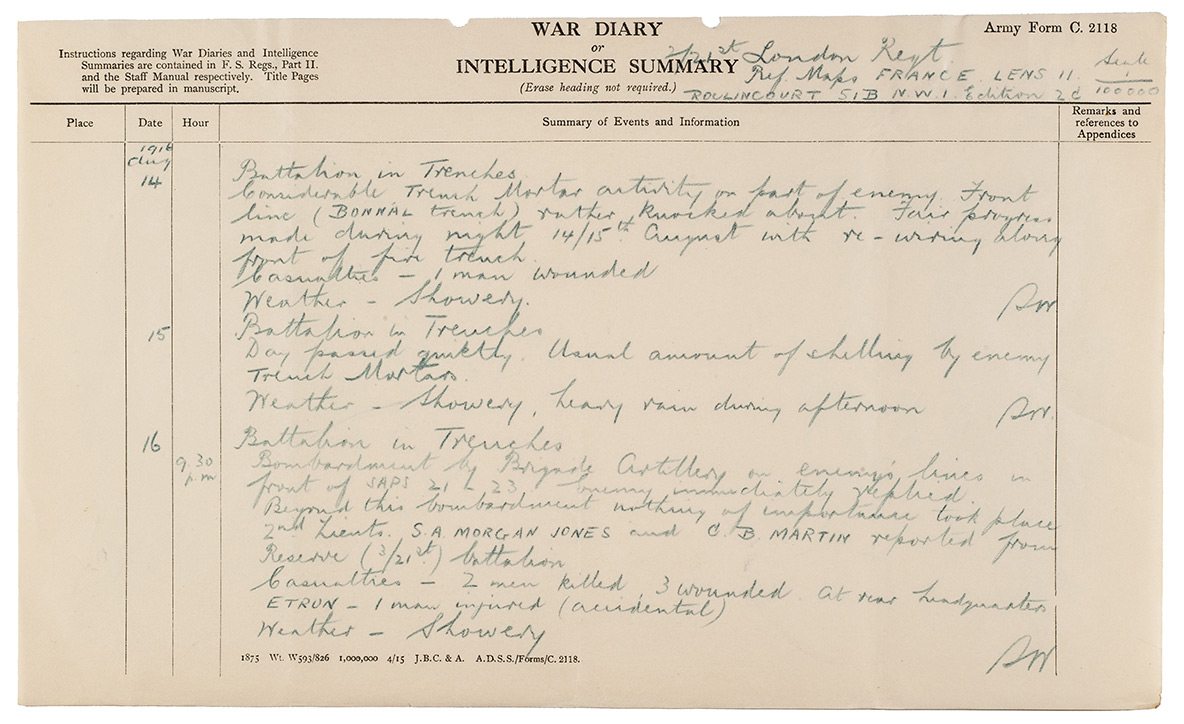 WAR DIARY
or
INTELLIGENCE SUMMARY
(Erase heading not required.)
Army Form C. 2118
Instructions regarding War Diaries and Intelligence
Summaries are contained in F. S. Regs., Part II.
and the Staff Manual respectively. Title Pages
will be prepared in manuscript.
2/21st London Regt.
Ref. Maps FRANCE. LENS 11. Scale 1/100000
ROULINCOURT 51B N.W.1. Edition 2C
Place Date Hour Summary of Events and Information Remarks and references to Appendices
1916
Aug
14 Battalion in Trenches
Considerable Trench Mortar activity on part of enemy. Front
line (BONNAL trench) rather knocked about. Fair progress
made during night 14/15th August with re-wiring along
front of fire trench.
Casualties - 1 man wounded
Weather - Showery.
15 Battalion in Trenches
Day passed quietly. Usual amount of shelling by enemy
Trench Mortars.
Weather - Showery, heavy rain during afternoon
16 Battalion in Trenches
9.30 p.m Bombardment by Brigade Artillery on enemy's lines in
front of SAPS 21 & 23. Enemy immediately replied.
Beyond this bombardment nothing of importance took place
2nd Lieuts. S.A. MORGAN JONES and C. B. MARTIN reported from
Reserve (3/21st) battalion
Casualties - 2 men killed, 3 wounded. At rear headquarters
ETRUN - 1 man injured (accidental)
Weather - Showery
1875 Wt. W593/826 1,000,000 4/15 J.B.C. & A. A.D.S.S./Forms/C. 2118.